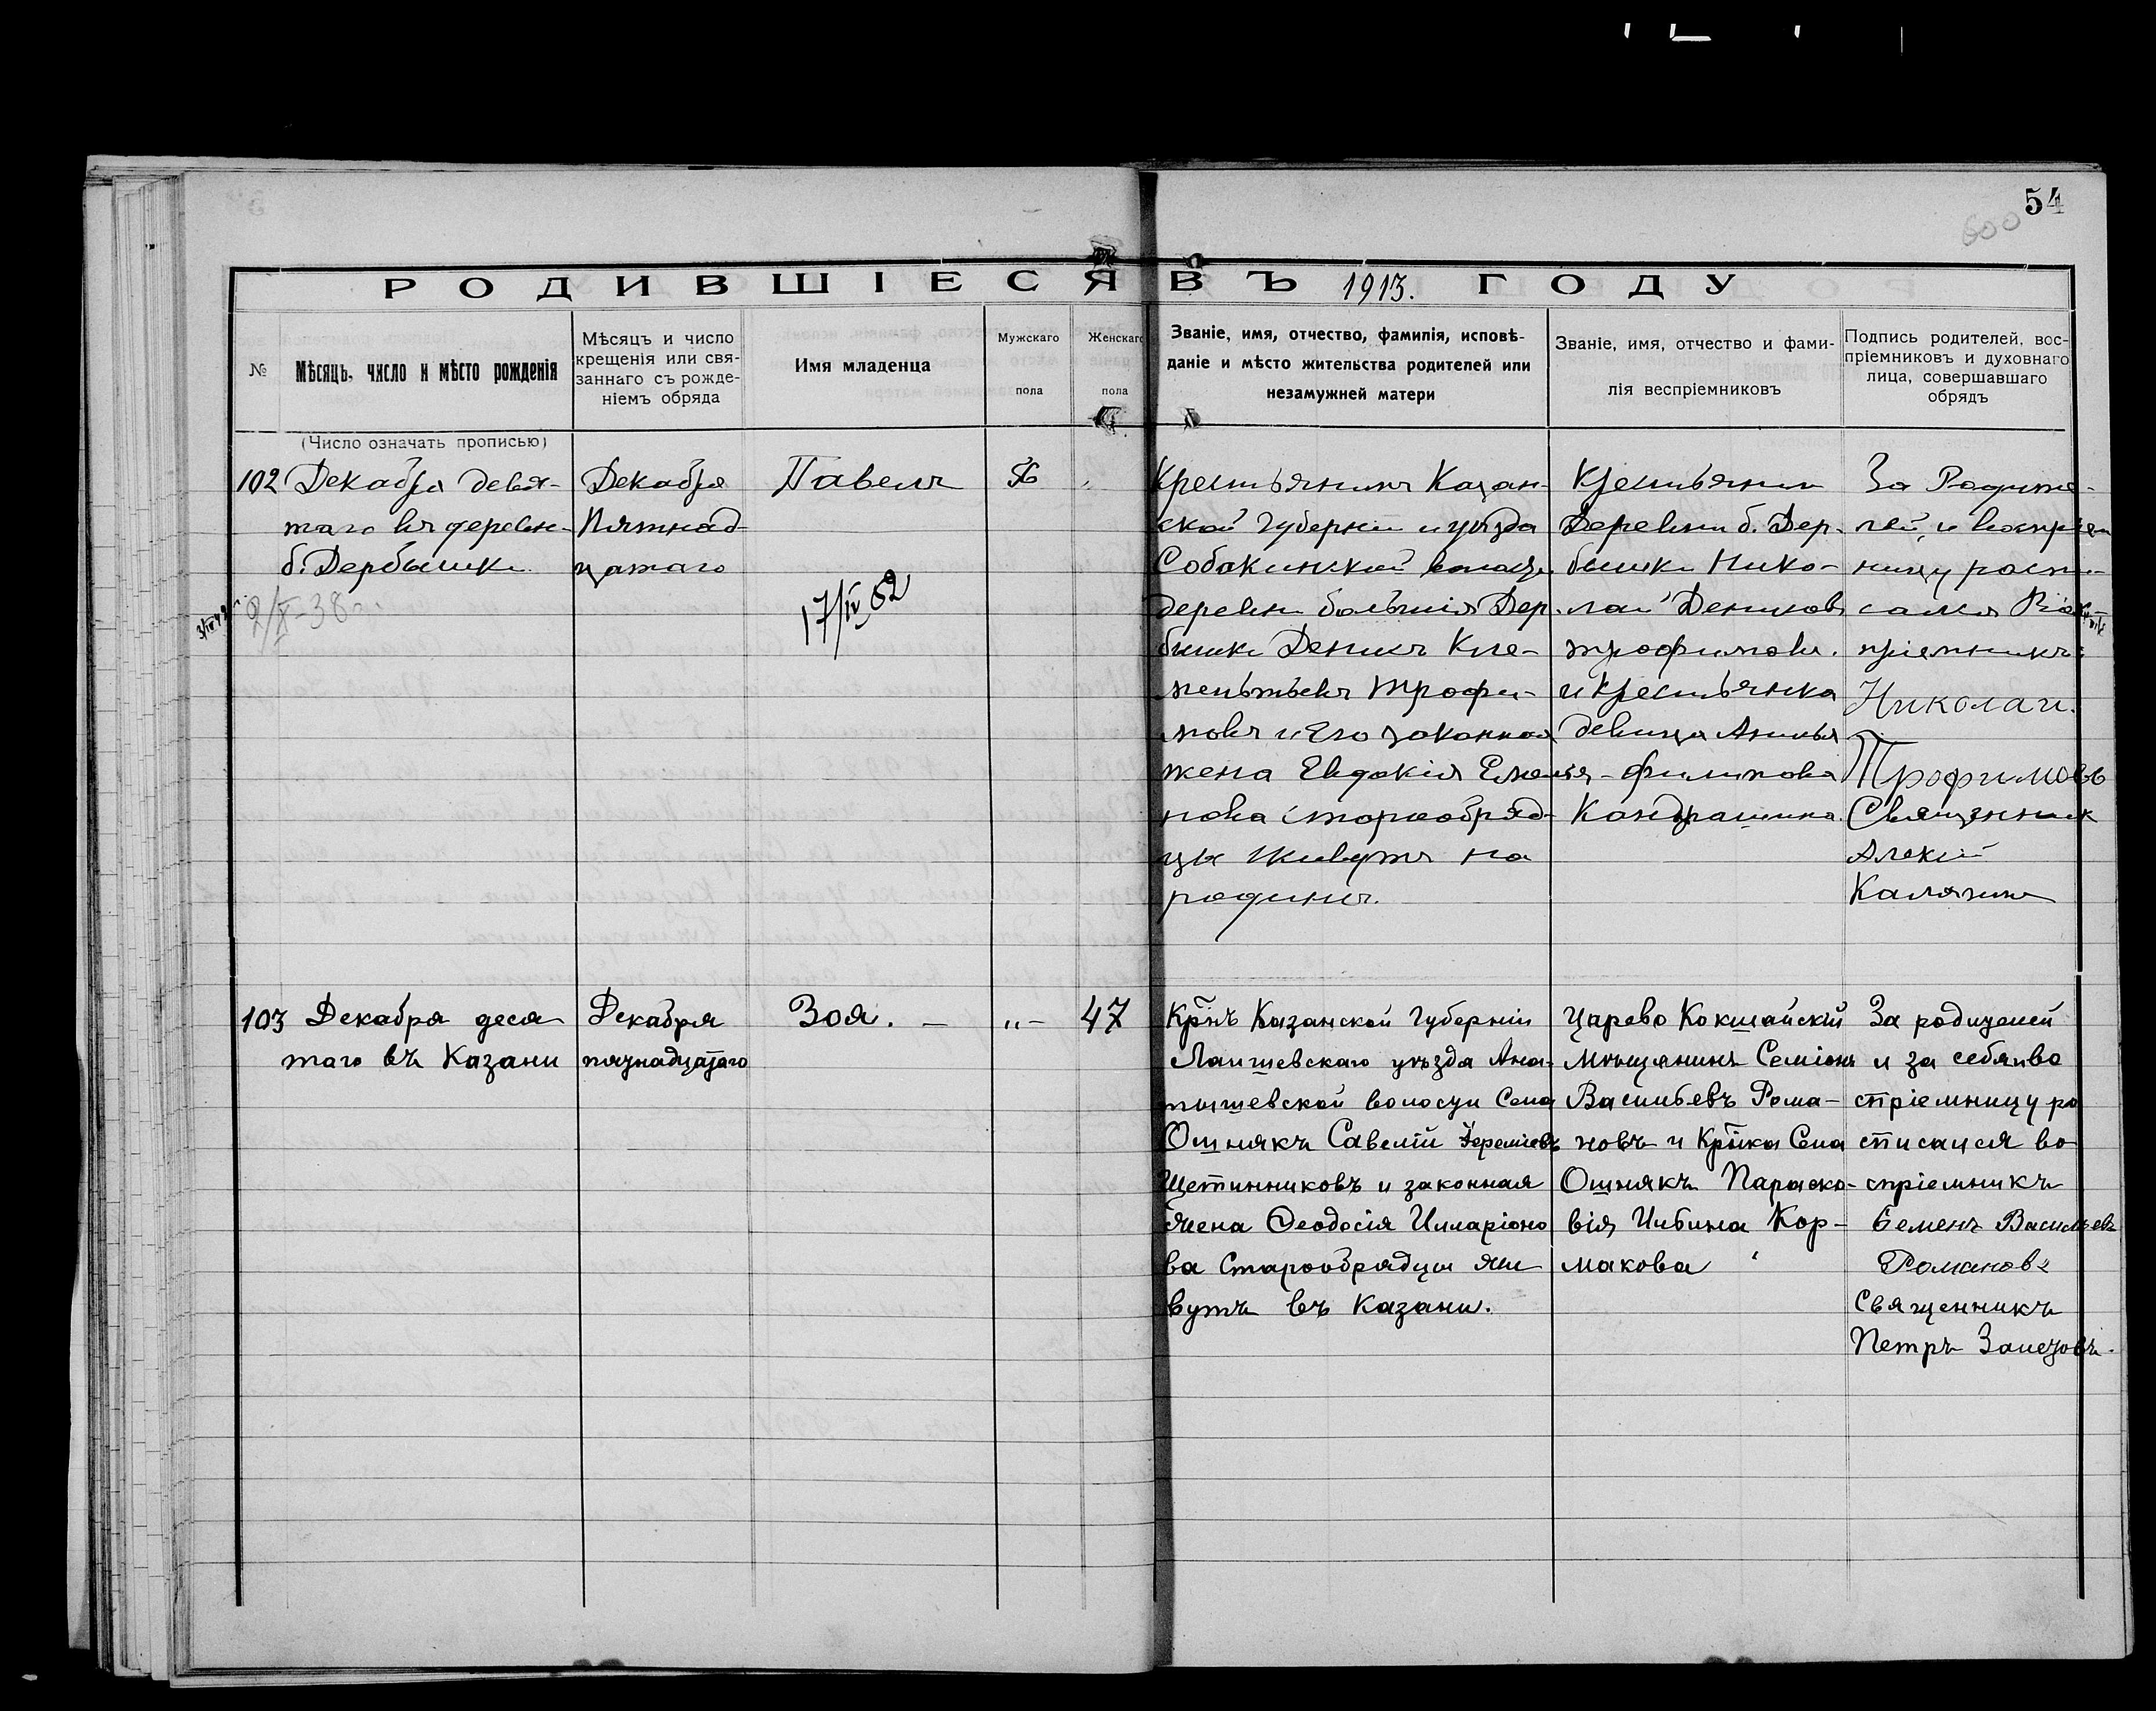 54
600
РОДИВШІЕСЯ ВЪ 1913. ГОДУ
№
Мѣсяцъ, число и мѣсто рожденія
Мѣсяцъ и число
крещенія или свя-
заннаго съ рожде-
ніемъ обряда
Имя младенца
Мужскаго
пола
Женскаго
пола
Званіе, имя, отчество, фамилія, исповѣ-
даніе и мѣсто жительства родителей или
незамужней матери
Званіе, имя, отчество и фами-
лія веспріемниковъ
Подпись родителей, вос-
пріемниковъ и духовнаго
лица, совершавшаго
обрядъ
(Число означать прописью)
102
Декабря девя-
таго въ деревн-
б. Дербышки
2/X-38г.
Декабря
Пятнад-
цатаго
Павелъ
17/IV 62
56
Крестьянинъ Казан-
ской Губерніи и уѣзда
Собакинской волости
деревни большія Дер-
бышки Денисъ Кле-
меньтьевъ Трофи-
мовъ и Его законная
жена Евдокія Емелья-
нова старообряд-
цы Живутъ на
родинѣ.
Крестьянин
Деревни б. Дер-
бышки Нико-
лай Денисов
Трофимовъ.
и Крестьянка
девица Анисья
Филипова
Кандрашина.
За Родите-
лей, и воспріем
ницу роспи-
сался
пріемникъ:
Николай.
Трофимовъ
Священник
Алексій
Калягин
103
Декабря деся
таго въ Казани
Декабря
пятнадцатаго
Зоя. -
„-
47
Кр̅нъ Казанской Губерніи
Лаишевскаго уѣзда Ана-
тышевской волости Села
Ошнякъ Савелій Еремѣевъ
Щетинниковъ и законная
жена Ѳеодосія Илларіоно
ва Старообрядцы жи
вутъ въ Казани.
Царево Кокшайскій
Мѣщанинъ Семіонъ
Васильевъ Рома-
новъ и Кр̅нка Села
Ошнякъ Параско-
вія Ильина Кор-
макова
За родителей
и за себя и во
спріемницу ро
списался во
спріемникъ
Семенъ Васильевъ
Романовъ
Священникъ
Петръ Залетовъ.